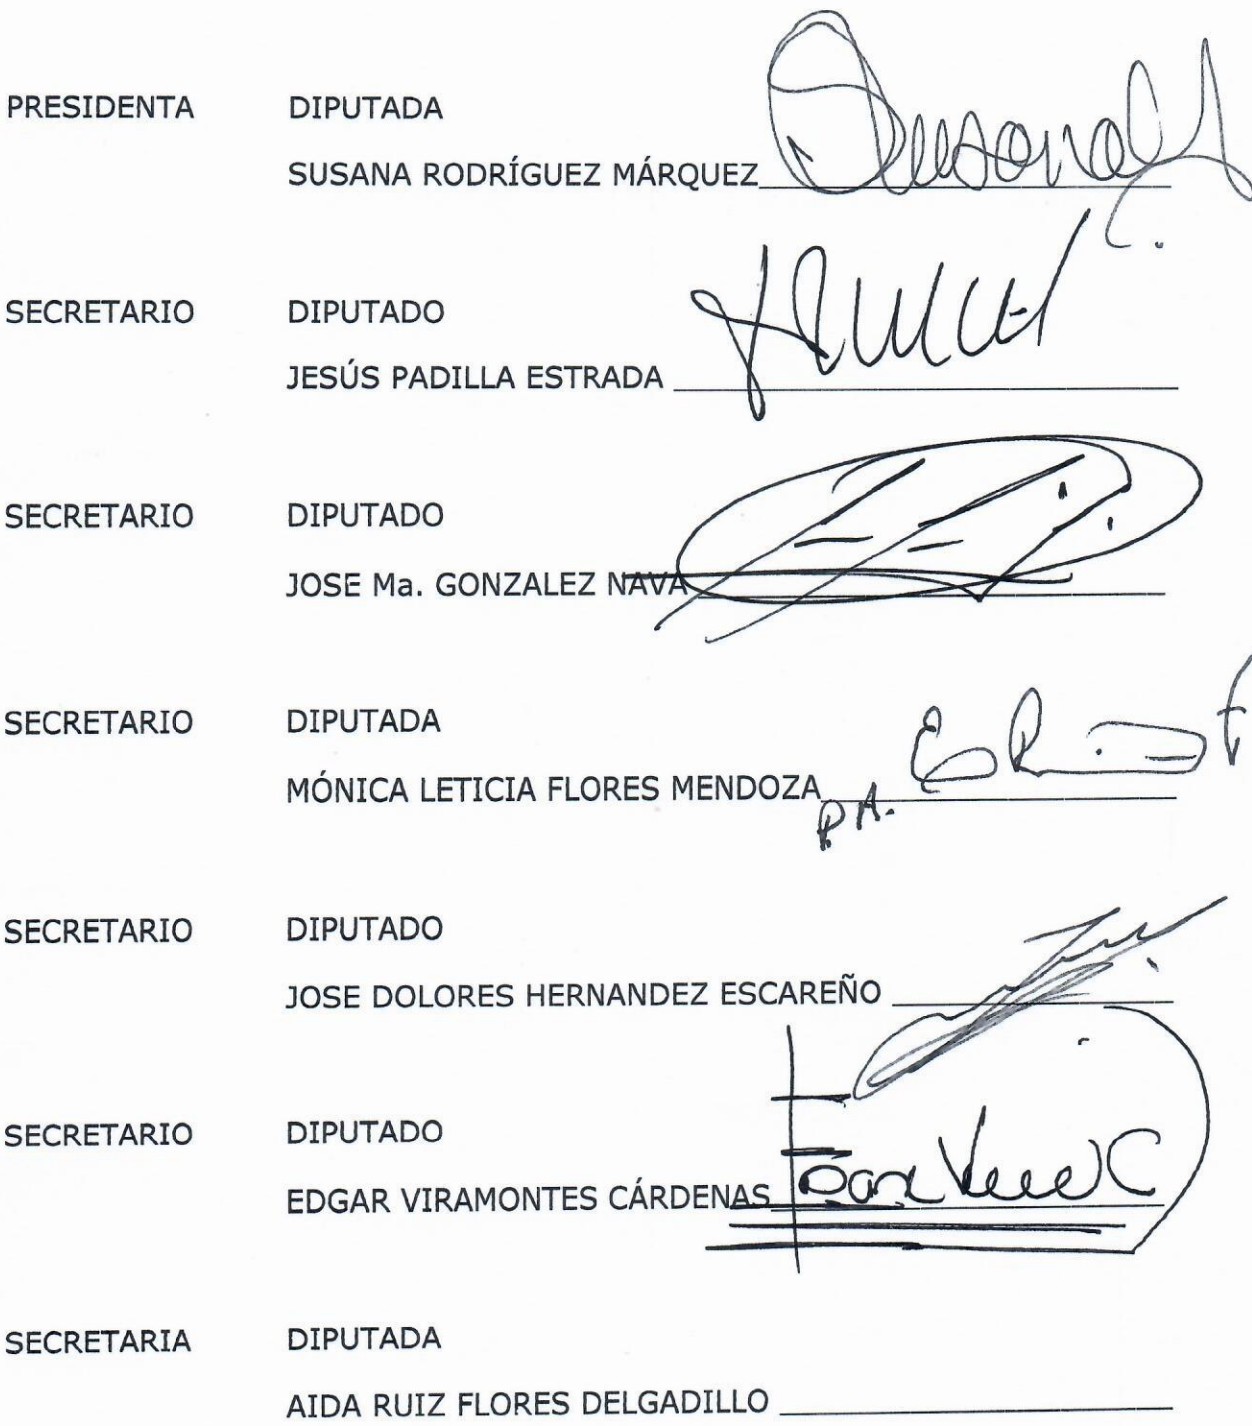 PRESIDENTA DIPUTADA
SUSANA RODRÍGUEZ MÁRQUEZ
SECRETARIO DIPUTADO
JESÚS PADILLA ESTRADA
SECRETARIO DIPUTADO
JOSE Ma. GONZALEZ NAVA
SECRETARIO DIPUTADA
MÓNICA LETICIA FLORES MENDOZA
P.A.
SECRETARIO DIPUTADO
JOSE DOLORES HERNANDEZ ESCAREÑO
SECRETARIO DIPUTADO
EDGAR VIRAMONTES CÁRDENAS
SECRETARIA DIPUTADA
AIDA RUIZ FLORES DELGADILLO